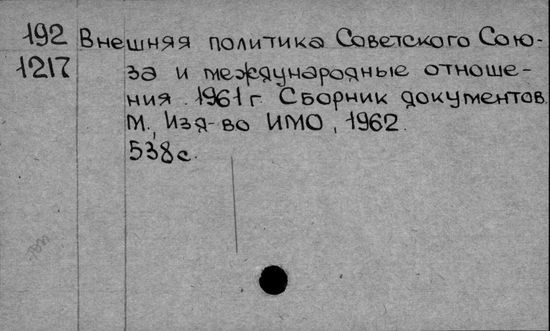 192 Внешняя политика Советского Сою-
1217 за и международные отноше-
ния. 1961 г. Сборник документов.
М., Изд-во ИМО, 1962.
538 с.